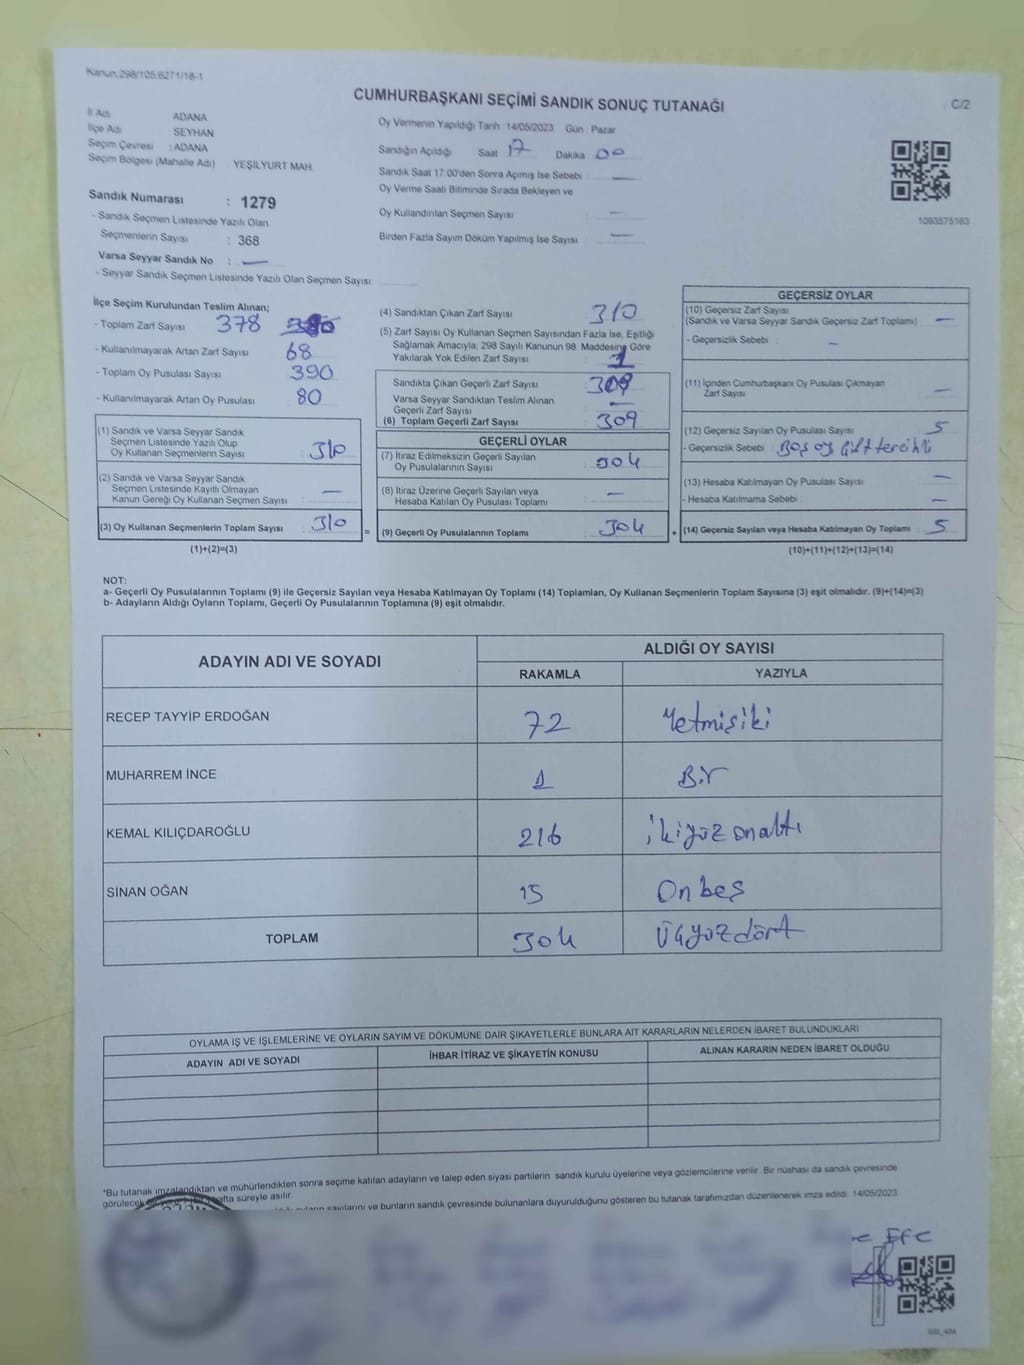 Kanun:298/105,6271/18-1
CUMHURBAŞKANI SEÇİMİ SANDIK SONUÇ TUTANAĞI
C/2
İl Adı ADANA
İlçe Adı SEYHAN
Seçim Çevresi : ADANA
Seçim Bölgesi (Mahalle Adı) : YEŞİLYURT MAH.
Sandık Numarası : 1279
- Sandık Seçmen Listesinde Yazılı Olan
Seçmenlerin Sayısı : 368
Varsa Seyyar Sandık No : —
- Seyyar Sandık Seçmen Listesinde Yazılı Olan Seçmen Sayısı:
Oy Vermenin Yapıldığı Tarih :14/05/2023 Gün : Pazar
Sandığın Açıldığı Saat 17 Dakika 00
Sandık Saat 17:00'den Sonra Açımış İse Sebebi : —
Oy Verme Saati Bitiminde Sırada Bekleyen ve
Oy Kullandırılan Seçmen Sayısı : —
Birden Fazla Sayım Döküm Yapılmış İse Sayısı : —
1093575163
İlçe Seçim Kurulundan Teslim Alınan;
- Toplam Zarf Sayısı 378
- Kullanılmayarak Artan Zarf Sayısı 68
- Toplam Oy Pusulası Sayısı 390
- Kullanılmayarak Artan Oy Pusulası 80
(1) Sandık ve Varsa Seyyar Sandık
Seçmen Listesinde Yazılı Olup
Oy Kullanan Seçmenlerin Sayısı 310
(2) Sandık ve Varsa Seyyar Sandık
Seçmen Listesinde Kayıtlı Olmayan
Kanun Gereği Oy Kullanan Seçmen Sayısı : —
(3) Oy Kullanan Seçmenlerin Toplam Sayısı : 310 =
(1)+(2)=(3)
(4) Sandıktan Çıkan Zarf Sayısı 310
(5) Zarf Sayısı Oy Kullanan Seçmen Sayısından Fazla İse, Eşitliği
Sağlamak Amacıyla; 298 Sayılı Kanunun 98. Maddesine Göre
Yakılarak Yok Edilen Zarf Sayısı : 1
Sandıkta Çıkan Geçerli Zarf Sayısı 309
Varsa Seyyar Sandıktan Teslim Alınan
Geçerli Zarf Sayısı —
(6) Toplam Geçerli Zarf Sayısı 309
GEÇERLİ OYLAR
(7) İtiraz Edilmeksizin Geçerli Sayılan
Oy Pusulalarının Sayısı 304
(8) İtiraz Üzerine Geçerli Sayılan veya
Hesaba Katılan Oy Pusulası Toplamı : —
(9) Geçerli Oy Pusulalarının Toplamı : 304 +
GEÇERSİZ OYLAR
(10) Geçersiz Zarf Sayısı
(Sandık ve Varsa Seyyar Sandık Geçersiz Zarf Toplamı) : —
- Geçersizlik Sebebi : —
(11) İçinden Cumhurbaşkanı Oy Pusulası Çıkmayan
Zarf Sayısı : —
(12) Geçersiz Sayılan Oy Pusulası Sayısı : 5
- Geçersizlik Sebebi : Boş oy Çift tercihli
(13) Hesaba Katılmayan Oy Pusulası Sayısı : —
- Hesaba Katılmama Sebebi : —
(14) Geçersiz Sayılan veya Hesaba Katılmayan Oy Toplamı : 5
(10)+(11)+(12)+(13)=(14)
NOT:
a- Geçerli Oy Pusulalarının Toplamı (9) ile Geçersiz Sayılan veya Hesaba Katılmayan Oy Toplamı (14) Toplamları, Oy Kullanan Seçmenlerin Toplam Sayısına (3) eşit olmalıdır. (9)+(14)=(3)
b- Adayların Aldığı Oyların Toplamı, Geçerli Oy Pusulalarının Toplamına (9) eşit olmalıdır.
ADAYIN ADI VE SOYADI ALDIĞI OY SAYISI
RAKAMLA YAZIYLA
RECEP TAYYİP ERDOĞAN 72 Yetmişiki
MUHARREM İNCE 1 Bir
KEMAL KILIÇDAROĞLU 216 ikiyüz onaltı
SİNAN OĞAN 15 Onbeş
TOPLAM 304 Üçyüzdört
OYLAMA İŞ VE İŞLEMLERİNE VE OYLARIN SAYIM VE DÖKÜMÜNE DAİR ŞİKAYETLERLE BUNLARA AİT KARARLARIN NELERDEN İBARET BULUNDUKLARI
ADAYIN ADI VE SOYADI İHBAR İTİRAZ VE ŞİKAYETİN KONUSU ALINAN KARARIN NEDEN İBARET OLDUĞU
*Bu tutanak imzalandıktan ve mühürlendikten sonra seçime katılan adayların ve talep eden siyasi partilerin sandık kurulu üyelerine veya gözlemcilerine verilir. Bir nüshası da sandık çevresinde
görülecek hafta süreyle asılır.
sayılarını ve bunların sandık çevresinde bulunanlara duyurulduğunu gösteren bu tutanak tarafımızdan düzenlenerek imza edildi. 14/05/2023
Efe